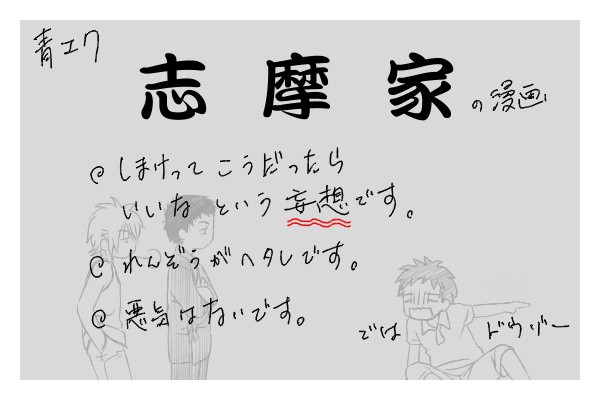 青エク
志摩家の漫画
@しまけってこうだったら
いいなという妄想です。
@れんぞうがヘタレです。
@悪気はないです。
では ドウゾー